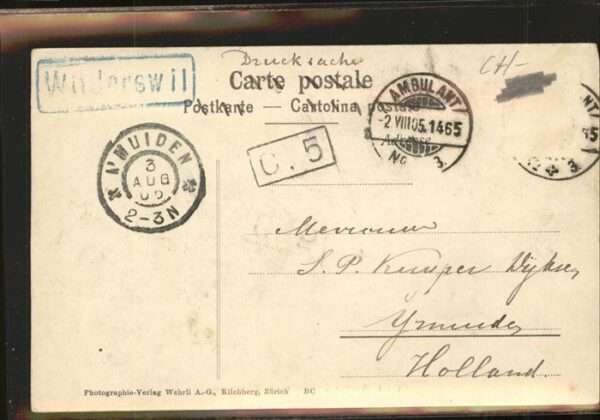 Drucksache
CH-
Wilderswil
Carte postale
Postkarte — Cartolina postale
AMBULANT
-2.VIII.05.1465
No 3.
NT
5
3.
Adresse
C. 5
IJMUIDEN
3
AUG
05
2-3N
Mevrouw
S. P. Kuyper Wijkse
Ymuiden
Holland.
Photographie-Verlag Wehrli A.-G., Kilchberg, Zürich BC